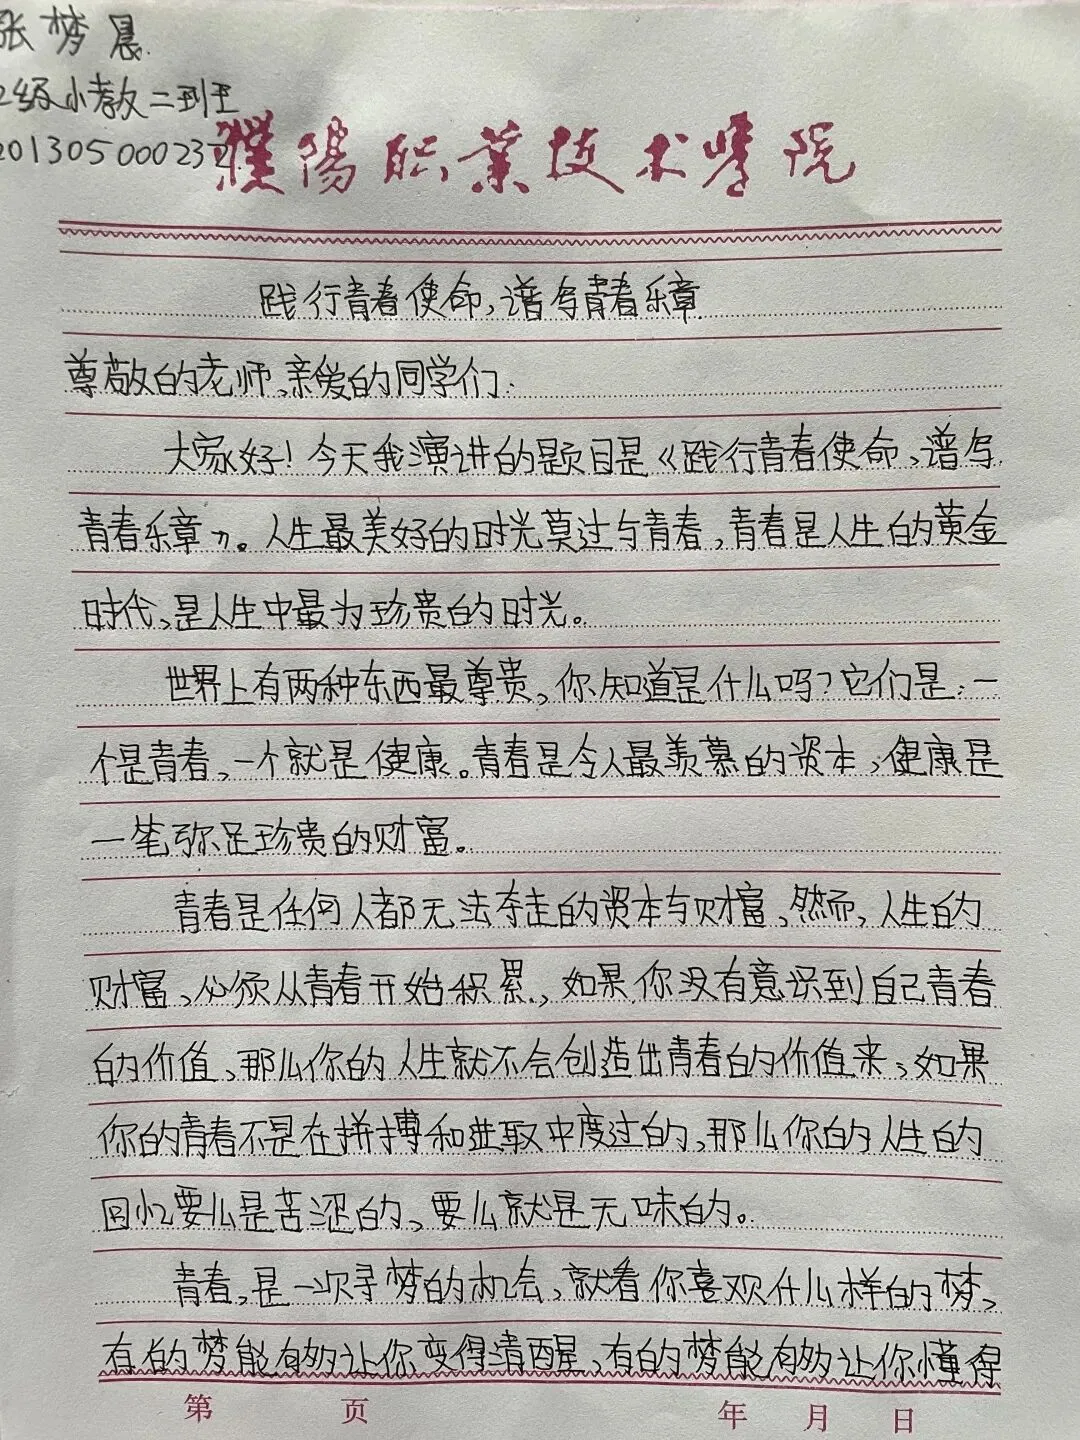 张梦晨
2级小教二班
201305000232
濮陽职業技术學院
践行青春使命,谱写青春乐章
尊敬的老师、亲爱的同学们:
大家好!今天我演讲的题目是《践行青春使命,谱写
青春乐章》。人生最美好的时光莫过与青春,青春是人生的黄金
时代,是人生中最为珍贵的时光。
世界上有两种东西最尊贵,你知道是什么吗?它们是:一
个是青春,一个就是健康。青春是令人最羡慕的资本,健康是
一笔弥足珍贵的财富。
青春是任何人都无法夺走的资本与财富,然而,人生的
财富,必须从青春开始积累,如果你没有意识到自己青春
的价值,那么你的人生就不会创造出青春的价值来,如果
你的青春不是在拼搏和进取中度过的,那么你的人生的
回忆要么是苦涩的,要么就是无味的。
青春,是一次寻梦的机会,就看你喜欢什么样的梦,
有的梦能够让你变得清醒,有的梦能够让你懂得
第 页 年 月 日